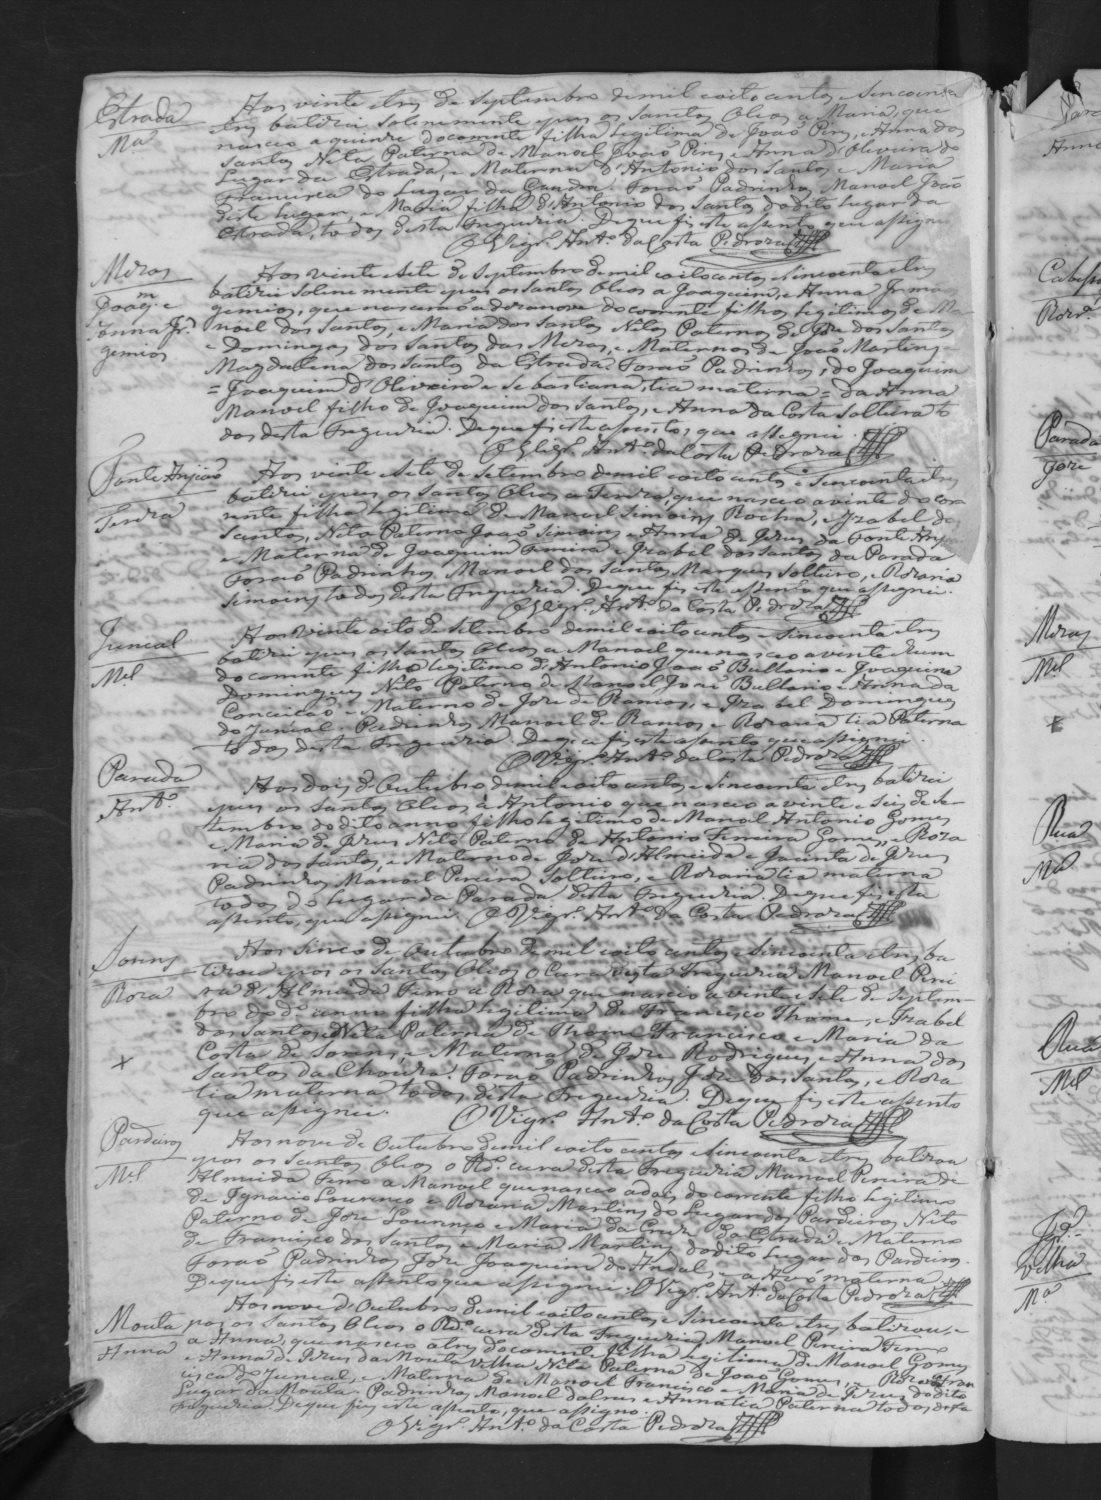 Estrada
Mª
Aos vinte e tres de Septembro de mil e oito centos e sincoenta
e tres batizei solenemente e puz os Santos Oleos a Maria, que
nasceo a quinze do corrente filha legitima de João Pires, e Anna dos
Santos, Neta Paterna de Manoel João Pires, e Anna d'Oliveira do
Lugar da Estrada, e Materna d'Antonio dos Santos, e Maria
Francisca do Lugar da Forão Padrinhos Manoel João
deste lugar, e Maria filha d'Antonio dos Santos do dito lugar da
Estrada, todos desta Freguezia. De que fiz este assento que assignei
O Vigrº Antº da Costa Pedroza
Meras
Joaqm e
Anna Irs
gemios
Aos vinte e sete de Septembro de mil e oito centos e sincoenta e tres
batizei solenemente e puz os Santos Oleos a Joaquim, e Anna Irmaos
gemios, que nascerão a dezanove do corrente filhos legitimos de Ma-
noel dos Santos, e Maria dos Santos Netos Paternos de Jose dos Santos
e Domingas dos Santos das Meras, e Maternos de João Martins
Magdalena dos Santos da Estrada. Forão Padrinhos, do Joaquim
= Joaquim d'Oliveira e Sebastiana, tia materna = da Anna
Manoel filho de Joaquim dos Santos, e Anna da Costa Solteira to
dos desta Freguezia. De que fiz este assento, que assignei.
O Vigrº Antº da Costa Pedroza
Fonte Anjião
Aos vinte e sete de Setembro de mil e oito centos e sincoenta e tres
batizei e puz os Santos Oleos a que nasceo a vinte do cor
rente filho legitimo de Manoel Simoins Rocha, e Izabel dos
Santos, Neto Paterno João Simoins e Anna de Jezus da Fonte Anj
e Materno de Joaquim Ferreira e Izabel dos Santos da Parada
Forão Padrinhos Manoel dos Santos Marques Solteiro, e Rozaria
Simoins todos desta Freguezia. De que fiz este assento que assignei.
O Vigrº Antº da Costa Pedroza
Juncal
Mel
Aos vinte oito de Setembro de mil e oito centos e sincoenta e tres
batizei e puz os Santos Oleos a Manoel que nasceo a vinte e hum
do corrente filho legitimo de Antonio João Bullario e Joaquina
Domingues Neto Paterno de Manoel José Bullario e Anna da
Conceicão e Materno de Jose de Ramos, e Izabel Domingues
do Juncal Padrinhos Manoel de Ramos e Rozaria tia Paterna
todos desta Freguezia. De que fiz este assento que assignei.
O Vigrº Antº da Costa Pedroza
Parada
Antº
Aos dois d'Outubro de mil e oito centos e sincoenta e tres batizei
e puz os Santos Oleos a Antonio que nasceo a vinte e seis de Se-
tembro do dito anno filho legitimo de Manoel Antonio Gomes
e Maria de Jezus Neto Paterno de Antonio Ferreira Gomes, e Roza
ria dos Santos, e Materno de Jose d'Almeida e Jacinta de Jezus
Padrinhos Manoel Pereira Solteiro, e Rozaria tia materna
todos do lugar da Parada desta Freguezia. De que fiz este
assento, que assignei. O Vigrº Antº da Costa Pedroza
Roza
x
Aos sinco de Outubro de mil e oito centos e sincoenta e tres ba
tizou e poz os Santos Oleos o Cura desta Freguezia Manoel Perei
ra d'Almeida Ferro a Roza que nasceo a vinte e sete de Septem-
bro do dº anno filha legitima de Francisco Thome, e Izabel
dos Santos, Neta Paterna de Thome Francisco e Maria da
Costa de e Materna de Jose Rodrigues, e Anna dos
Santos da Choura. Forão Padrinhos Jose dos Santos, e Roza
tia materna todos desta Freguezia. De que fiz este assento
que assignei. O Vigrº Antº da Costa Pedroza
Pardieiros
Mel
Aos nove de Outubro de mil e oito centos e sincoenta e tres batizou
e poz os Santos Oleos o Rdº cura desta Freguezia Manoel Pereira de
Almeida Ferro a Manoel que nasceo a dois do corrente filho legitimo
de Ignacio Lourenço e Rozaria Martins do Lugar dos Pardieiros Neto
Paterno de Jose Lourenço e Maria da Cruz da Estrada e Materno
de Francisco dos Santos e Maria Martins do dito Lugar dos Pardieiros.
Forão Padrinhos Jose Joaquim do e a Avó materna
De que fiz este assento que assignei. O Vigrº Antº da Costa Pedroza
Mouta
Anna
Aos nove de Outubro de mil e oito centos e sincoenta e tres batizou, e
poz os Santos Oleos o Rdº cura desta Freguezia Manoel Pereira Ferro
a Anna, que nasceo a tres do corrente filha legitima de Manoel Gomes
e Anna de Jezus da Mouta Velha Neta Paterna de João Gomes, e Roza Fran
cisca do Juncal, e Materna de Manoel Francisco e Maria de Jezus do dito
Lugar da Mouta. Padrinhos Manoel e Anna tia Paterna todos desta
Freguezia. De que fiz este assento, que assigno.
O Vigrº Antº da Costa Pedroza
Anna
Parada
Jozé
Meras
Mel
x
Rua
Mel
Rua
Mel
Velha
Mª